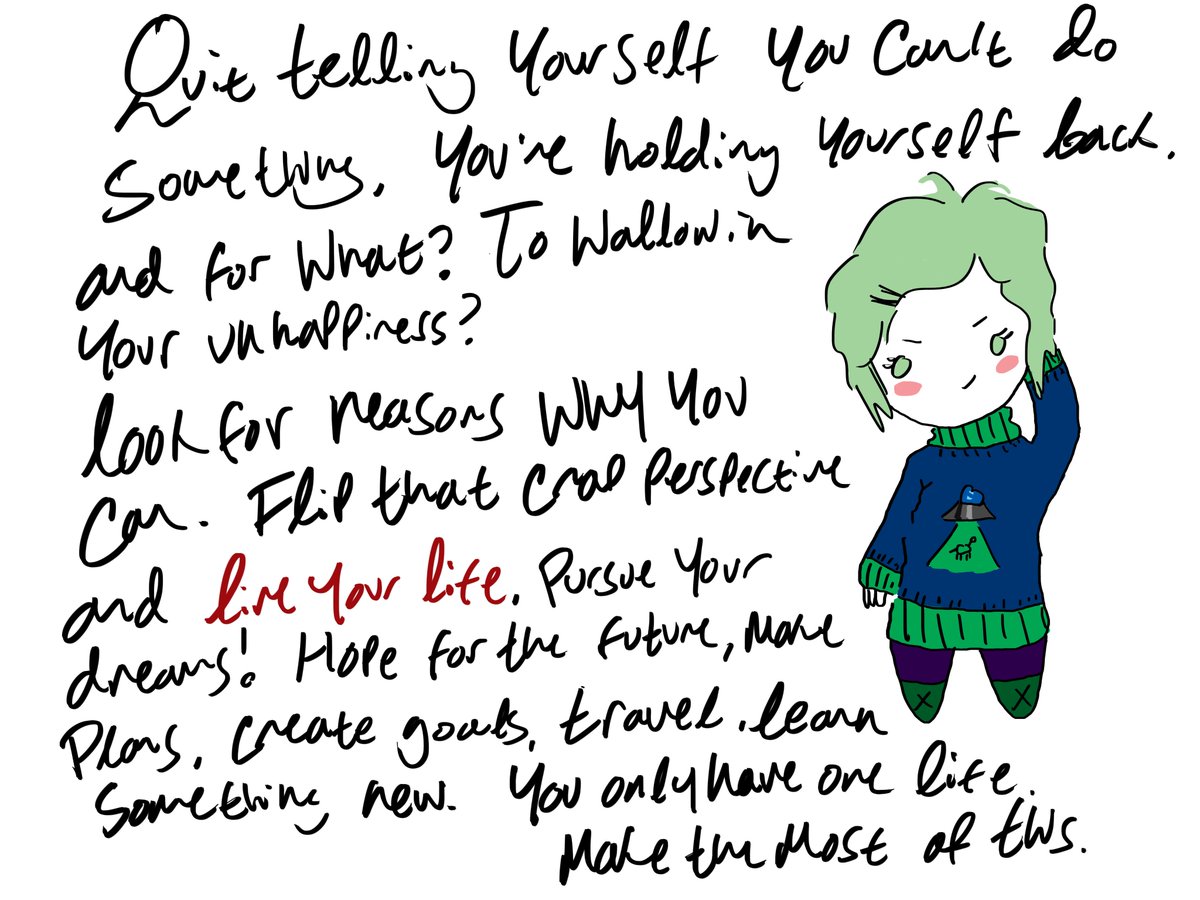 Quit telling yourself you can't do
something. You're holding yourself back.
and for what? To wallow in
your unhappiness?
look for reasons why you
can. Flip that crap perspective
and live your life. Pursue your
dreams! Hope for the future, make
plans, create goals, travel. learn
something new. You only have one life.
Make the most of this.